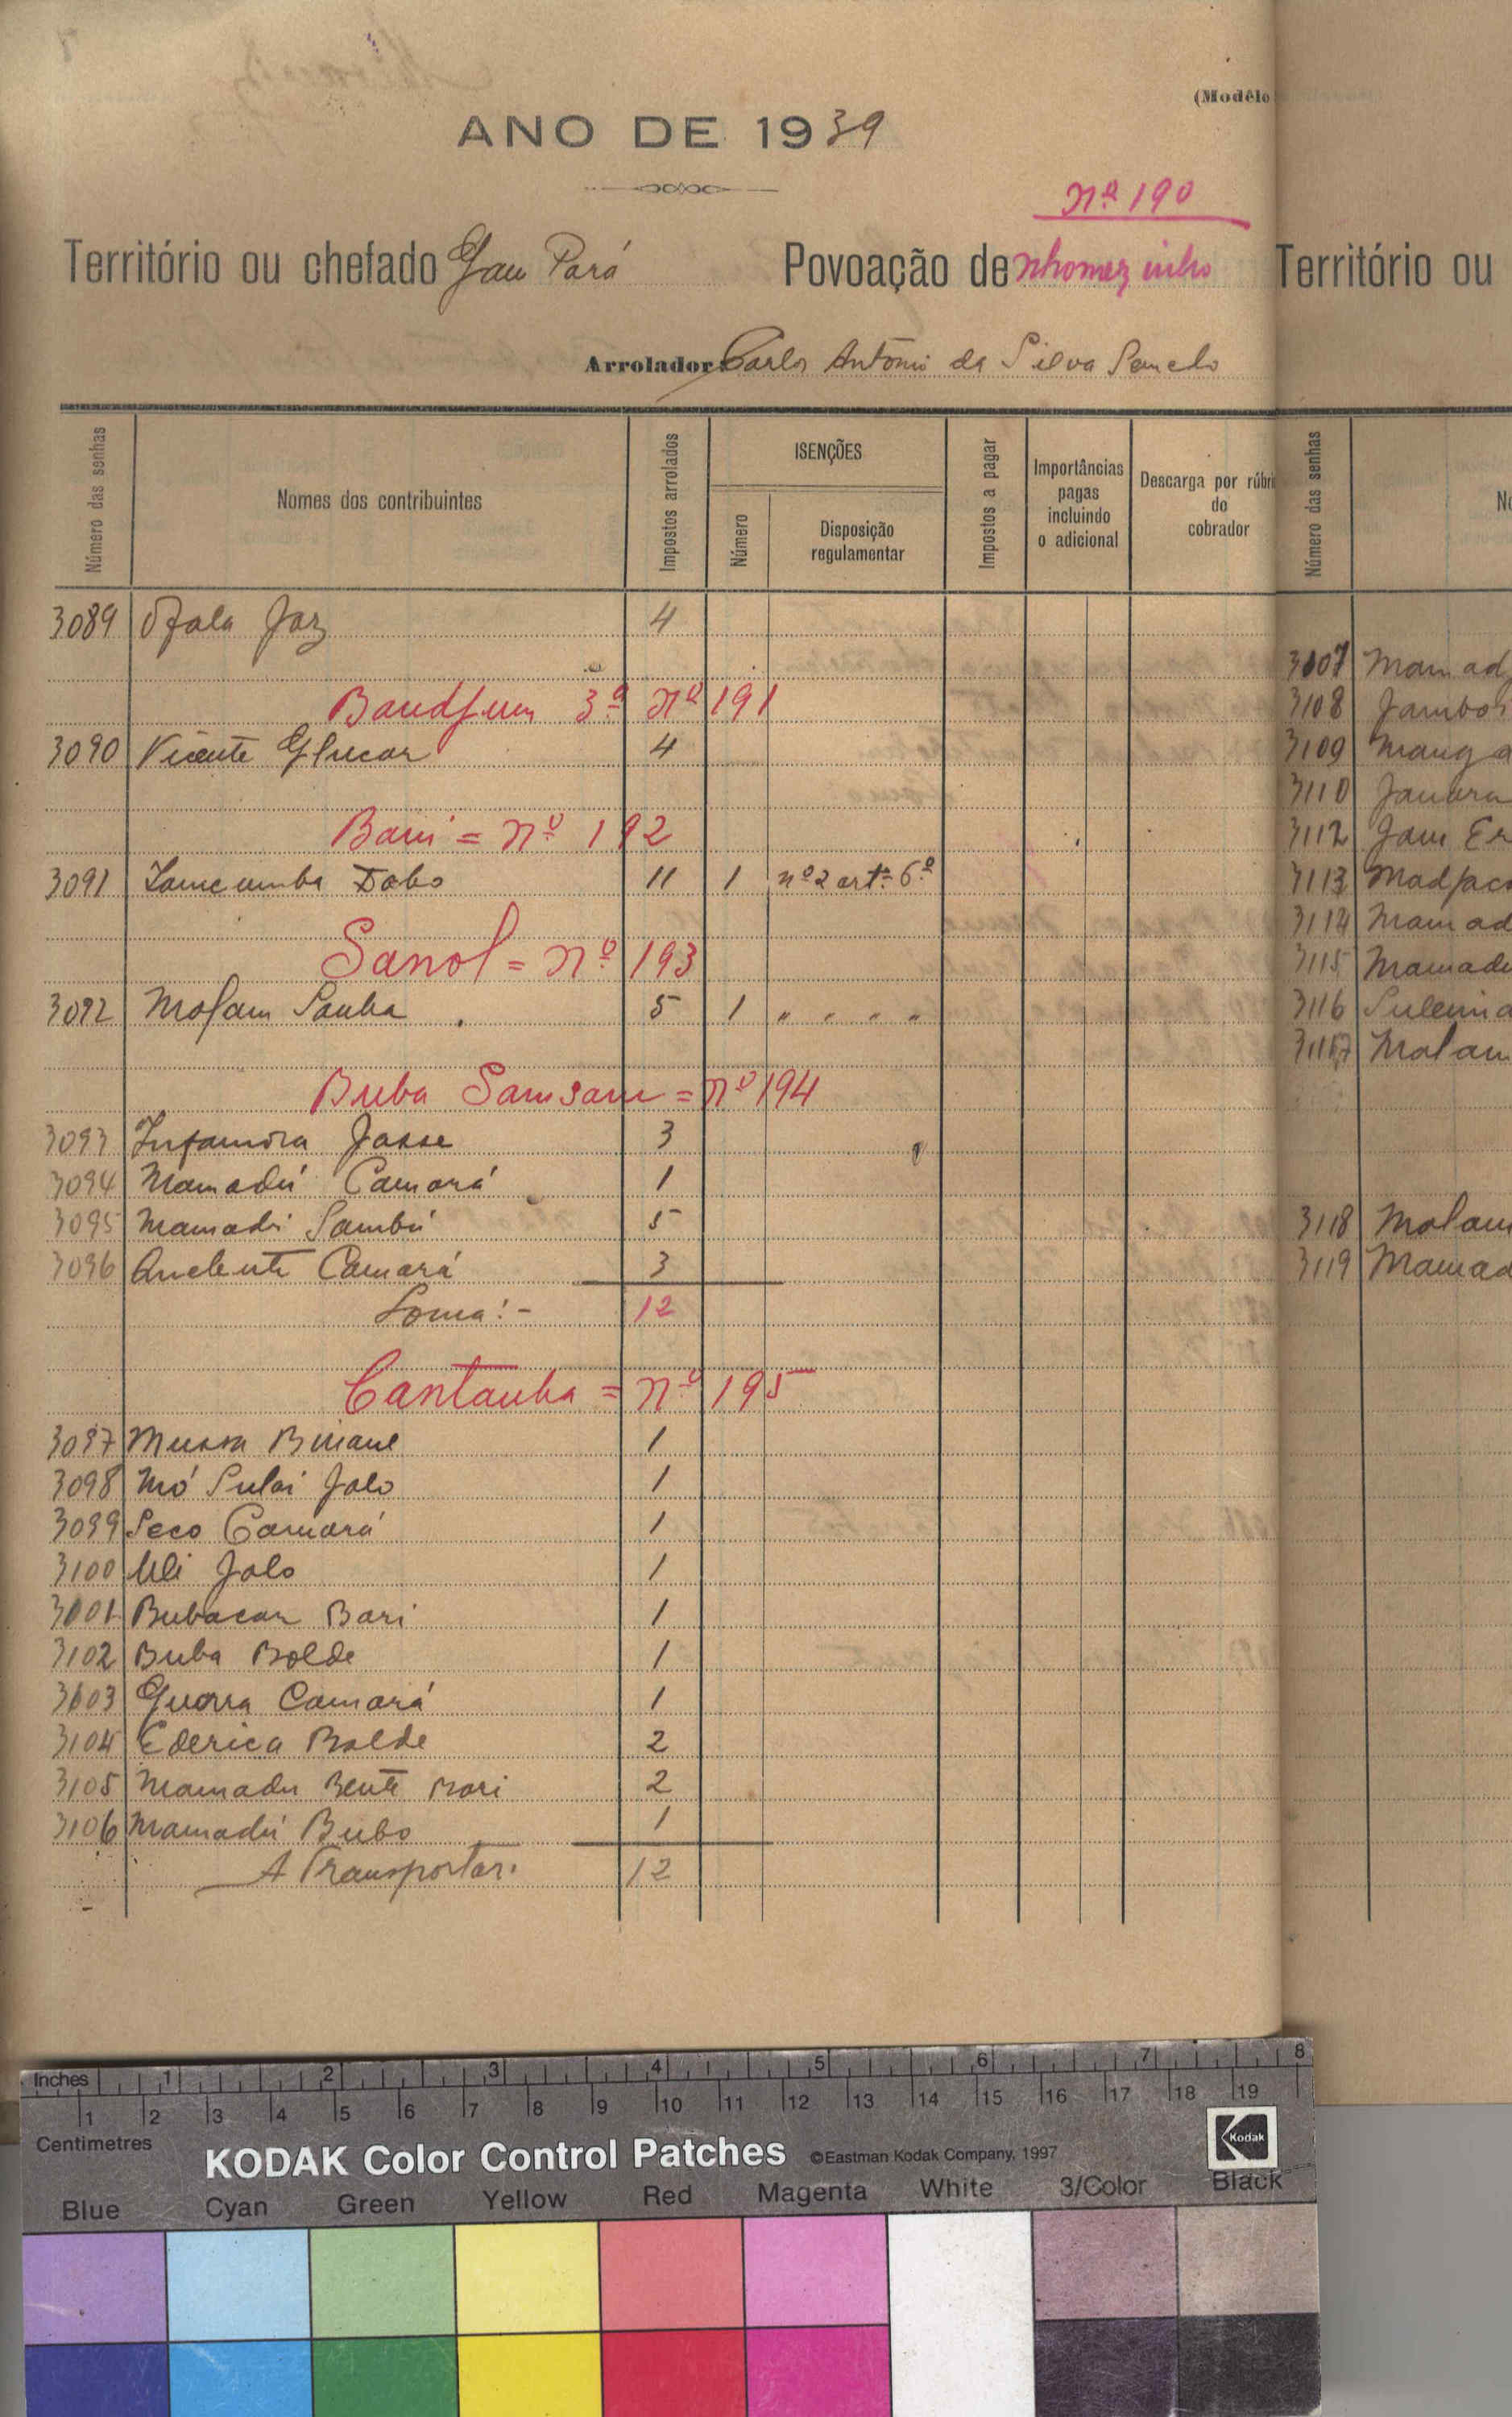 (Modêlo
ANO DE 1939
Nº 190
Território ou chefado Gan Pará Povoação de Nhomezinho
Arrolador: Carlos António da Silva
Número das senhas
Nomes dos contribuintes
Impostos arrolados
ISENÇÕES
Número
Disposição regulamentar
Impostos a pagar
Importâncias pagas incluindo o adicional
Descarga por rúbri
do cobrador
3089 Jaz 4
3ª Nº 191
3090 Vicente 4
Bani = Nº 192
3091 Dabo 11 1 nº 2 artº 6º
Sanol = Nº 193
3092 Sanha 5 1 " " " "
Buba Samsam = Nº 194
3093 Infamora Jasse 3
3094 Mamadú Camará 1
3095 Mamadú Sambú 5
3096 Camará 3
Soma:- 12
Cantanha = Nº 195
3097 Mussa 1
3098 Mó Sulai Jalo 1
3099 Seco Camará 1
3100 Uli Jalo 1
3101 Bubacar Bari 1
3102 Buba Bolde 1
3103 Camará 1
3104 Ederica Balde 2
3105 Mamadu Bente Bari 2
3106 Mamadú Bubo 1
A Transportar. 12
Território ou
Número das senhas
3107 Mamad
3108 Jambo
3109 Manga
3110
3112 Jam
3113
3114 Mamad
3115 Mamadu
3116 Suleima
3117 Malam
3118 Malam
3119 Mamad
Inches 1 2 3 4 5 6 7 8
1 2 3 4 5 6 7 8 9 10 11 12 13 14 15 16 17 18 19
Centimetres
KODAK Color Control Patches ©Eastman Kodak Company, 1997 Kodak
Blue Cyan Green Yellow Red Magenta White 3/Color Black